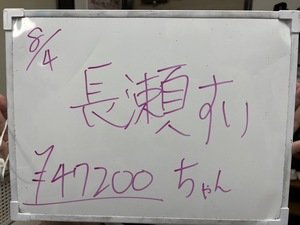 8/4
長瀬すい
¥47200 ちゃん